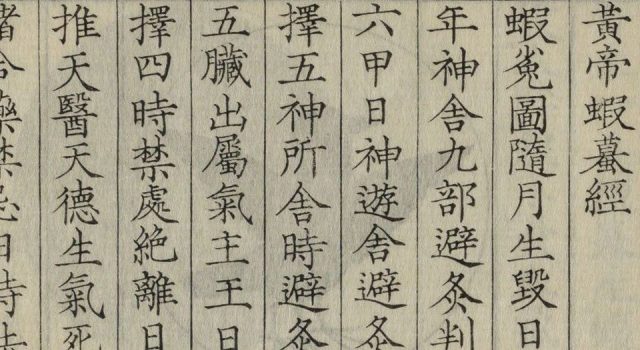 黃帝蝦蟇經
蝦兔圖隨月生毀日
年神舍九部避灸判
六甲日神遊舍避灸
擇五神所舍時避灸
五臟出屬氣主王日
擇四時禁處絶離日
推天醫天德生氣死
諸合藥禁忌日時法